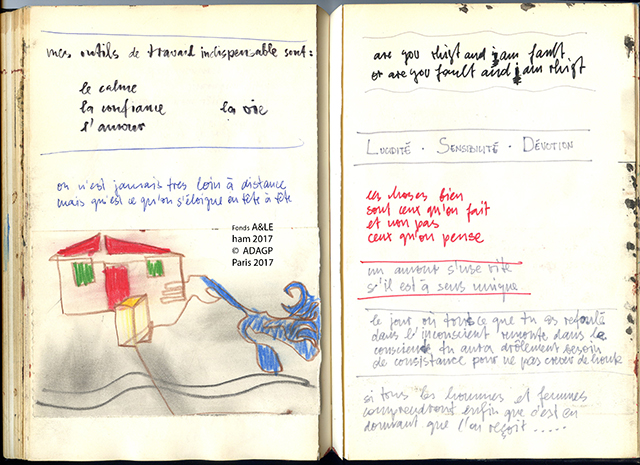 mes outils de travail indispensable sont:
le calme
la confiance la vie
l'amour
on n'est jamais tres loin à distance
mais qu'est ce qu'on s'éloigne en tête à tête
Fonds A&LE
ham 2017
© ADAGP
Paris 2017
are you rhigt and i am fault
or are you fault and i am rhigt
LUCIDITÉ · SENSIBILITÉ · DÉVOTION
les choses bien
sont ceux qu'on fait
et non pas
ceux qu'on pense
un amour s'use vite
s'il est à sens unique
le jour où tout ce que tu as refoulé
dans l'inconscient remonte dans le
conscient tu auras drôlement besoin
de consistance pour ne pas crever de honte
si tous les hommes et femmes
comprendront enfin que c'est en
donnant que l'on reçoit .....